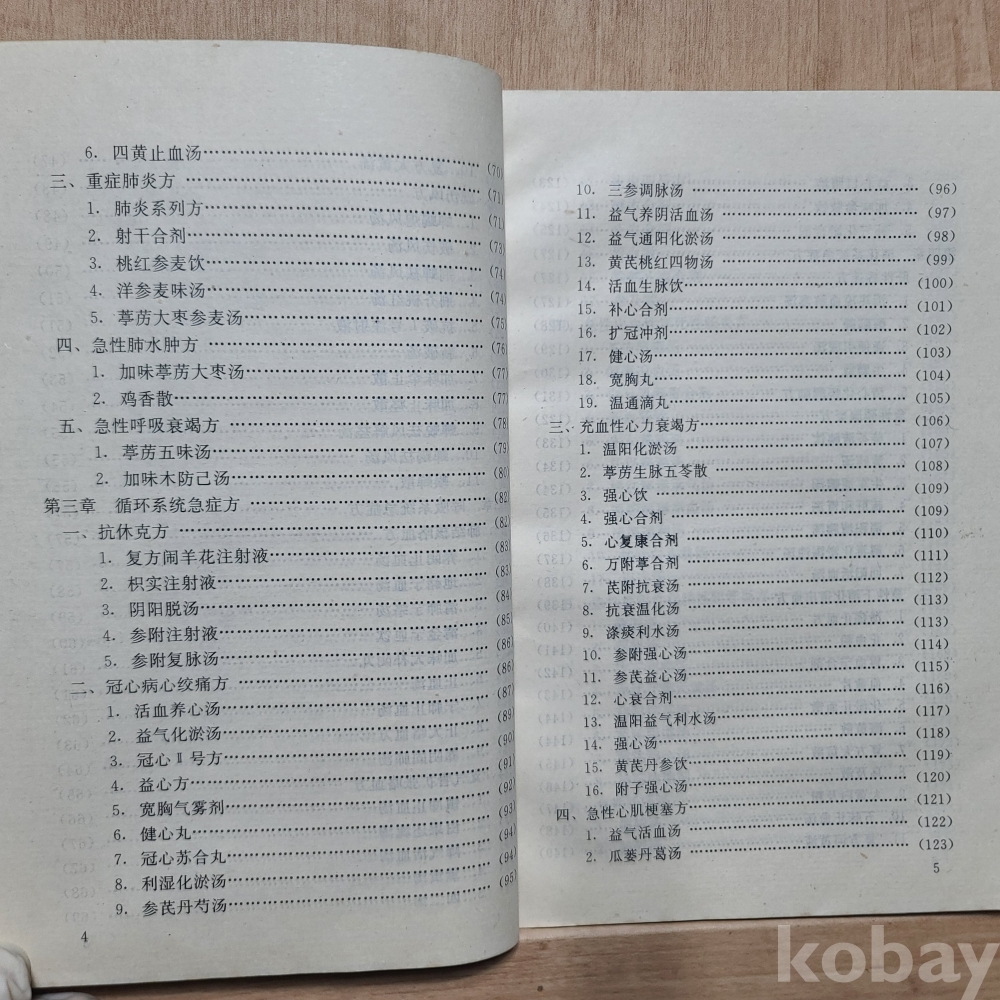 6. 四黄止血汤……(70)
三、重症肺炎方……(71)
1. 肺炎系列方……(71)
2. 射干合剂……(73)
3. 桃红参麦饮……(74)
4. 洋参麦味汤……(74)
5. 葶苈大枣参麦汤……(75)
四、急性肺水肿方……(76)
1. 加味葶苈大枣汤……(77)
2. 鸡香散……(77)
五、急性呼吸衰竭方……(78)
1. 葶苈五味汤……(79)
2. 加味木防己汤……(80)
第三章 循环系统急症方……(82)
一、抗休克方……(82)
1. 复方闹羊花注射液……(83)
2. 枳实注射液……(83)
3. 阴阳脱汤……(84)
4. 参附注射液……(85)
5. 参附复脉汤……(86)
二、冠心病心绞痛方……(86)
1. 活血养心汤……(87)
2. 益气化淤汤……(89)
3. 冠心Ⅱ号方……(90)
4. 益心方……(91)
5. 宽胸气雾剂……(92)
6. 健心丸……(93)
7. 冠心苏合丸……(94)
8. 利湿化淤汤……(94)
9. 参芪丹芍汤……(95)
4
10. 三参调脉汤……(96)
11. 益气养阴活血汤……(97)
12. 益气通阳化淤汤……(98)
13. 黄芪桃红四物汤……(99)
14. 活血生脉饮……(100)
15. 补心合剂……(101)
16. 扩冠冲剂……(102)
17. 健心汤……(103)
18. 宽胸丸……(104)
19. 温通滴丸……(105)
三、充血性心力衰竭方……(106)
1. 温阳化淤汤……(107)
2. 葶苈生脉五苓散……(108)
3. 强心饮……(109)
4. 强心合剂……(109)
5. 心复康合剂……(110)
6. 万附葶合剂……(111)
7. 芪附抗衰汤……(112)
8. 抗衰温化汤……(113)
9. 涤痰利水汤……(113)
10. 参附强心汤……(114)
11. 参芪益心汤……(115)
12. 心衰合剂……(116)
13. 温阳益气利水汤……(117)
14. 强心汤……(118)
15. 黄芪丹参饮……(119)
16. 附子强心汤……(120)
四、急性心肌梗塞方……(121)
1. 益气活血汤……(122)
2. 瓜蒌丹葛汤……(123)
5
kobay